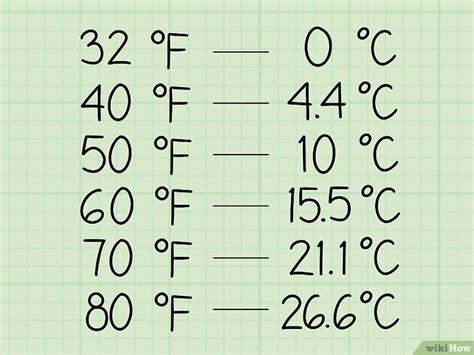 32 °F — 0 °C
40 °F — 4.4 °C
50 °F — 10 °C
60 °F — 15.5 °C
70 °F — 21.1 °C
80 °F — 26.6 °C
wikiHow